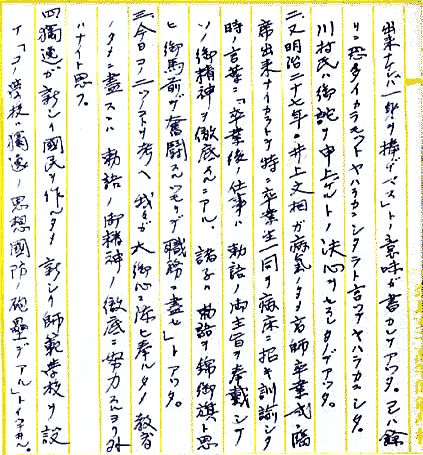 出来ナレバ一部ヲ捧ゲベス」トノ意味ガ書カレテアツタ。己ハ餘
リニ恐タイカラモツトヤハラカシタラト言フテヤハラカシタ。
川村氏ハ御詫ヲ申上ゲルトノ決心ヲセラレタノデアツタ。
二、又明治二十七年。井上文相ガ病気ノタメ高師卒業式ニ臨
席出来ナイカラトテ特ニ卒業生一同ヲ病床ニ招キ訓諭シタ
時ノ言葉ニ「卒業後ノ仕事ハ勅語ノ御主旨ヲ奉戴シテ
ソノ御精神ヲ徹底スルニアル。諸子ハ勅語ヲ錦御旗ト思
ヒ御馬前デ奮闘スルツモリデ職務ニ盡セ」トアツタ。
三、今日アニツアタリ考ヘ我々ガ大御心ニ添ヒ奉ルタメ教育
ノタメニ盡スニハ勅語ノ御精神ノ徹底ニ努力スルヨリ外
ハナイト思フ。
四、獨逸ガ新シイ國民ヲ作ルタメ新シイ師範學校ヲ設
ケ「コノ學校ハ獨逸ノ思想國防ノ砲壘デアル」トイフタ。